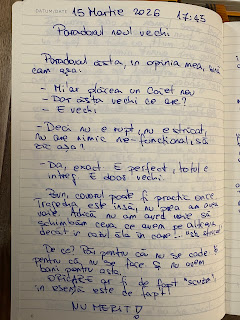 DATUM/DATE 15 Martie 2026 17:45
Paradoxul noul vechi
Paradoxul asta, in opinia mea, sună
cam așa:
- Mi-ar plăcea un caiet nou
- Dar ăsta vechi ce are?
- E vechi
- Deci nu e rupt, nu e stricat,
nu are nimic ne-funcțional, să
zic așa?
- Da, exact. E perfect, totul e
întreg. E doar vechi.
Bun, covorul poate fi practic orice
Tragedia este însă, nu prea am avea
voie. Adică nu am avea voie să
schimbăm ceva ce avem pe altceva
decât in cazul ăla în care s-a stricat.
De ce? Păi pentru că nu se cade și
pentru că nu se face și nu avem
bani pentru asta.
ORICARE ar fi de fapt "scuza",
in esență este de fapt
NU MERIT!